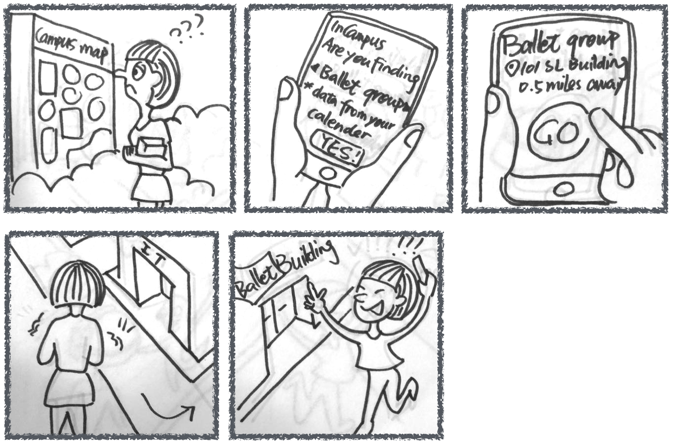 Campus map
???
InCampus
Are you finding
"Ballet group"
* data from your
calender
YES!
Ballet group
101 SL Building
0.5 miles away
GO
IT
Ballet Building
!!!!